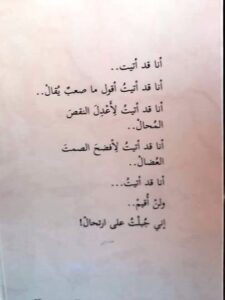 أنا قد أتيت..
أنا قد أتيتُ أقول ما صعبٌ يُقالْ..
أنا قد أتيتُ لِأَعْدِلَ النقصَ
المُحالْ..
أنا قد أتيتُ لِأفضحَ الصمتَ
العُضالْ..
أنا قد أتيتُ...
ولنْ أُقيمْ..
إني جُبلْتُ على ارتحالْ!